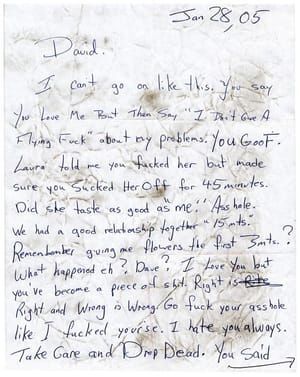 Jan 28,05
David.
I can't go on like this. You say
You Love Me But Then Say "I Don't Give A
Flying Fuck" about my problems. You GooF.
Laura told me you fucked her but made
sure you Sucked Her Off for 45 minutes.
Did she taste as good as "me." Asshole.
We had a good relationship together "15 mts.
Remember giving me flowers the first 3mts.?
What happened eh?, Dave? I Love You but
you've become a piece of shit. Right is
Right and Wrong is Wrong. Go fuck your asshole
like I fucked yours. I hate you always.
Take Care and Drop Dead. You Said